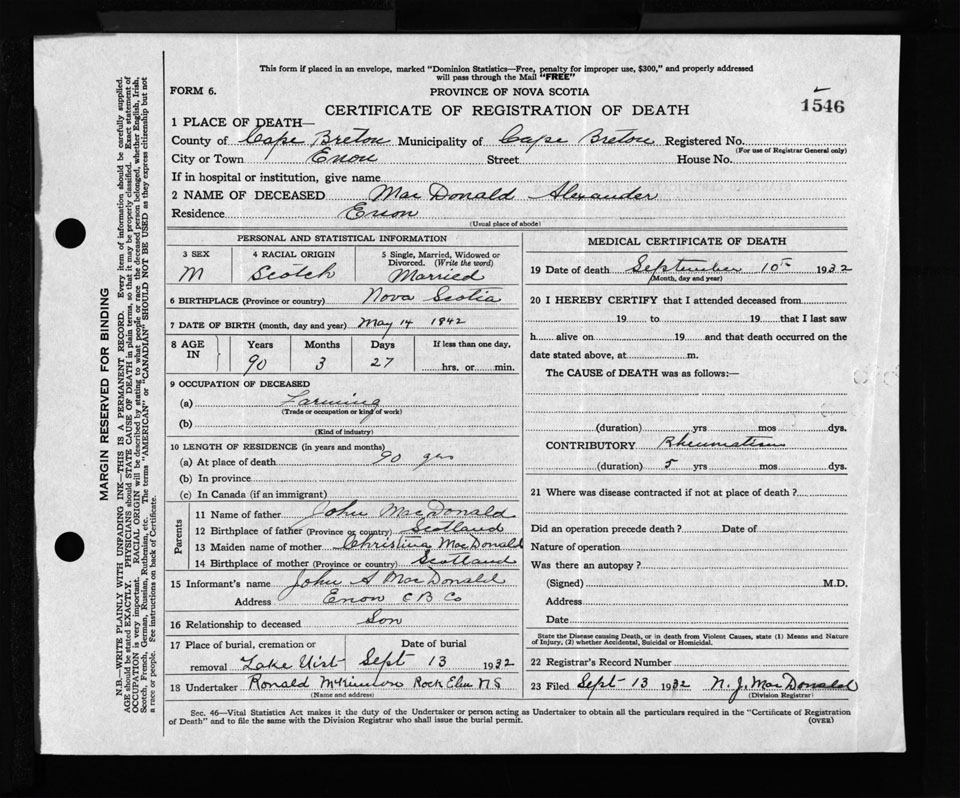 This form if placed in an envelope, marked "Dominion Statistics—Free, penalty for improper use, $300," and properly addressed
will pass through the Mail "FREE"
FORM 6.
PROVINCE OF NOVA SCOTIA
CERTIFICATE OF REGISTRATION OF DEATH
1546
1 PLACE OF DEATH—
County of Cape Breton Municipality of Cape Breton Registered No.
(For use of Registrar General only)
City or Town Enon Street House No.
If in hospital or institution, give name
2 NAME OF DECEASED MacDonald Alexander
Residence Enon
(Usual place of abode)
PERSONAL AND STATISTICAL INFORMATION
3 SEX 4 RACIAL ORIGIN 5 Single, Married, Widowed or
Divorced. (Write the word)
M Scotch Married
6 BIRTHPLACE (Province or country) Nova Scotia
7 DATE OF BIRTH (month, day and year) May 14 1842
8 AGE IN Years Months Days If less than one day,
90 3 27 hrs. or min.
9 OCCUPATION OF DECEASED
(a) Farming
(Trade or occupation or kind of work)
(b)
(Kind of industry)
10 LENGTH OF RESIDENCE (in years and months)
(a) At place of death 90 yrs
(b) In province
(c) In Canada (if an immigrant)
Parents
11 Name of father John MacDonald
12 Birthplace of father (Province or country) Scotland
13 Maiden name of mother Christina MacDonald
14 Birthplace of mother (Province or country) Scotland
15 Informant's name John A MacDonald
Address Enon C B Co
16 Relationship to deceased Son
17 Place of burial, cremation or Date of burial
removal Lake Uist Sept 13 1932
18 Undertaker Ronald McKinnon Rock Elm N S
(Name and address)
MEDICAL CERTIFICATE OF DEATH
19 Date of death September 10th 1932
(Month, day and year)
20 I HEREBY CERTIFY that I attended deceased from
19 to 19 that I last saw
h alive on 19 and that death occurred on the
date stated above, at m.
The CAUSE of DEATH was as follows:—
(duration) yrs mos dys.
CONTRIBUTORY Rheumatism
(duration) 5 yrs mos dys.
21 Where was disease contracted if not at place of death?
Did an operation precede death? Date of
Nature of operation
Was there an autopsy?
(Signed) M.D.
Address
Date
State the Disease causing Death, or in death from Violent Causes, state (1) Means and Nature
of Injury, (2) whether Accidental, Suicidal or Homicidal.
22 Registrar's Record Number
23 Filed Sept 13 1932 N. J. MacDonald
(Division Registrar)
Sec. 46—Vital Statistics Act makes it the duty of the Undertaker or person acting as Undertaker to obtain all the particulars required in the "Certificate of Registration
of Death" and to file the same with the Division Registrar who shall issue the burial permit.
(OVER)
MARGIN RESERVED FOR BINDING
N.B.—WRITE PLAINLY WITH UNFADING INK—THIS IS A PERMANENT RECORD. Every item of information should be carefully supplied.
AGE should be stated EXACTLY. PHYSICIANS should STATE CAUSE OF DEATH in plain terms, so that it may be properly classified. Exact statement of
OCCUPATION is very important. RACIAL ORIGIN will be described by stating to what people or race the deceased person belonged, whether English, Irish,
Scotch, French, German, Russian, Ruthenian, etc. The terms "AMERICAN" or "CANADIAN" SHOULD NOT BE USED as they express citizenship but not
a race or people. See instructions on back of Certificate.